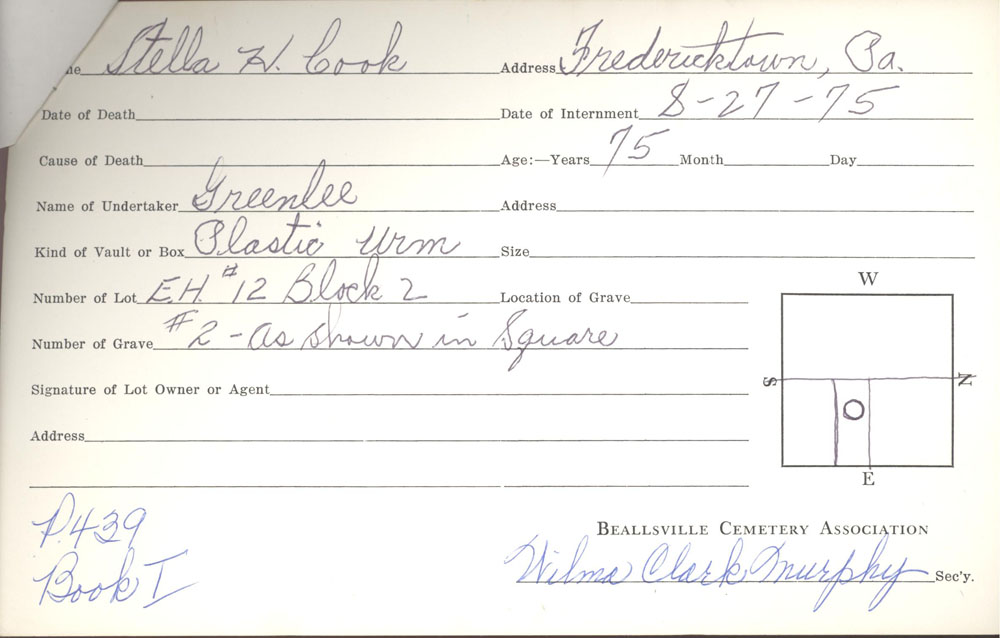 me Stella H. Cook Address Fredericktown, Pa.
Date of Death Date of Internment 8-27-75
Cause of Death Age:—Years 75 Month Day
Name of Undertaker Greenlee Address
Kind of Vault or Box Plastic Urm Size
Number of Lot E.H. #12 Block 2 Location of Grave
Number of Grave #2 - As shown in Square
Signature of Lot Owner or Agent
Address
W
S N
E
P.439
Book I
BEALLSVILLE CEMETERY ASSOCIATION
Wilma Clark Murphy Sec'y.